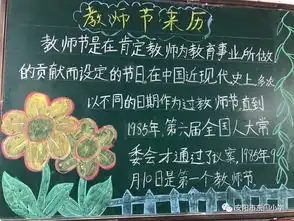 教师节来历
教师节是在肯定教师为教育事业所做
的贡献而设定的节日在中国近现代史上,多次
以不同的日期作为过教师节,直到
1985年,第六届全国人大常
委会才通过了议案,1985年9
月10日是第一个教师节.
安阳市东门小学